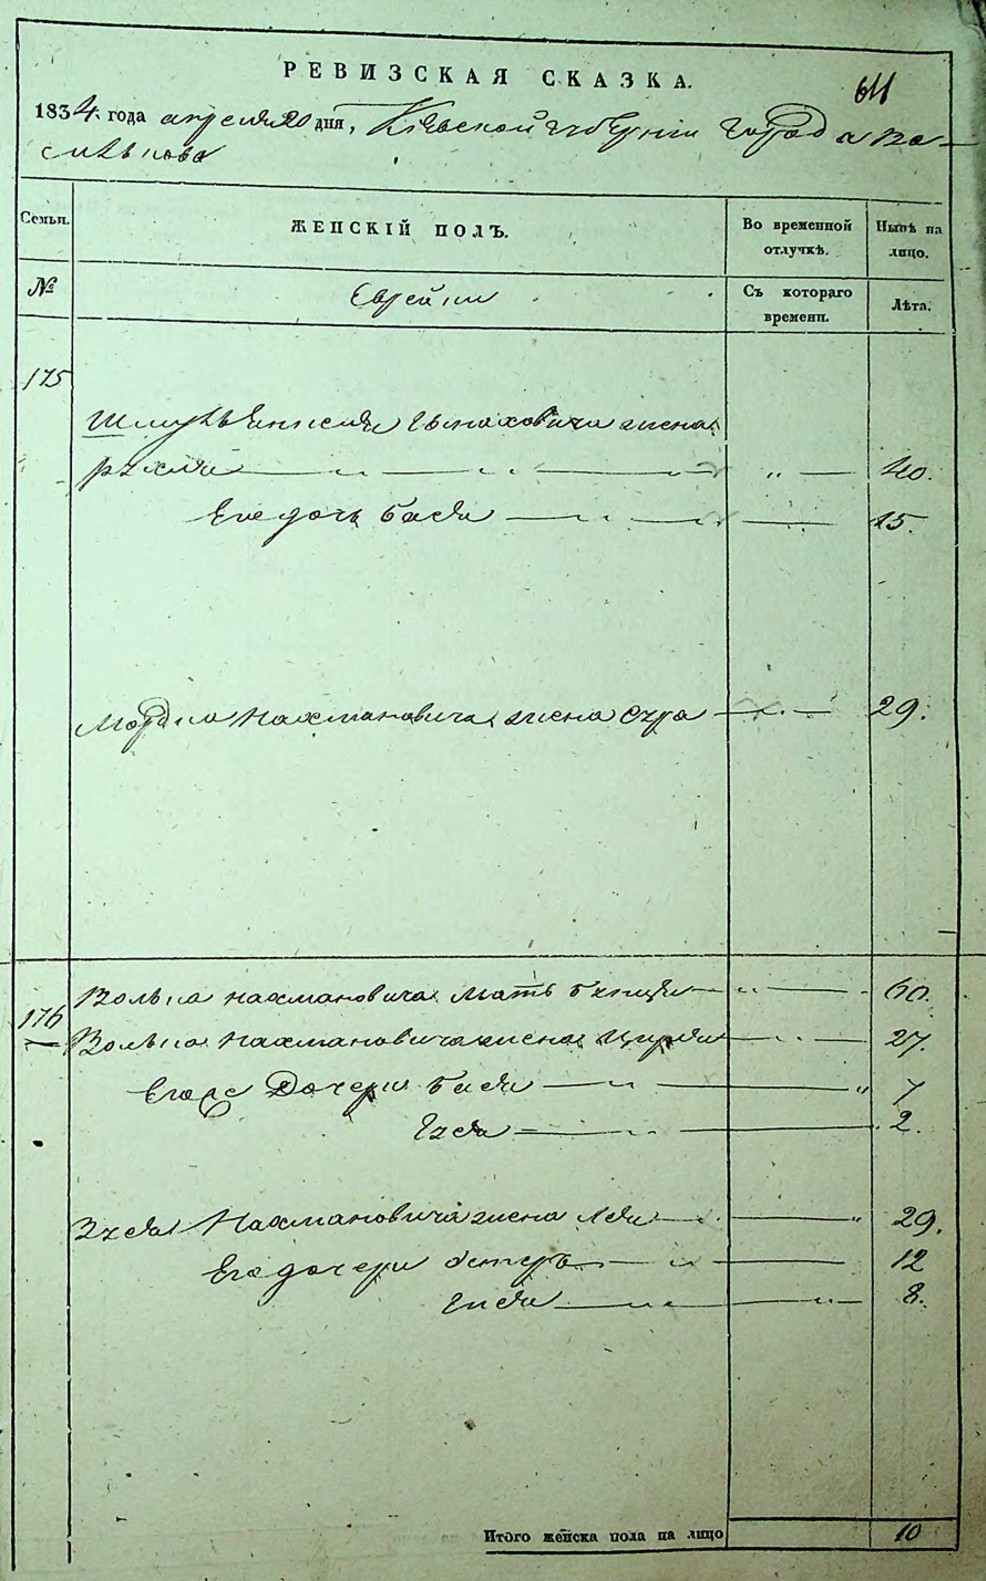 РЕВИЗСКАЯ СКАЗКА.
611
1834. года апреля 20 дня, Кіевской губерніи города Ва-
силькова
Семьи.
ЖЕНСКІЙ ПОЛЪ.
Во временной отлучкѣ.
Нынѣ на лицо.
№
Еврейки
Съ котораго времени.
Лѣта.
175
Шмуль Янкеля жена
Рухля „ 40.
Его дочь Бася 15.
Мордка Нахмановича жена Сура 29.
176
Волька Нахмановича мать 60.
Волька Нахмановича жена Цирля 27.
Егоже Дочери Бася „ 7
2.
Нахмановича жена Лея 29.
Его дочери Эстеръ 12
Гися 8.
Итого женска пола на лицо 10